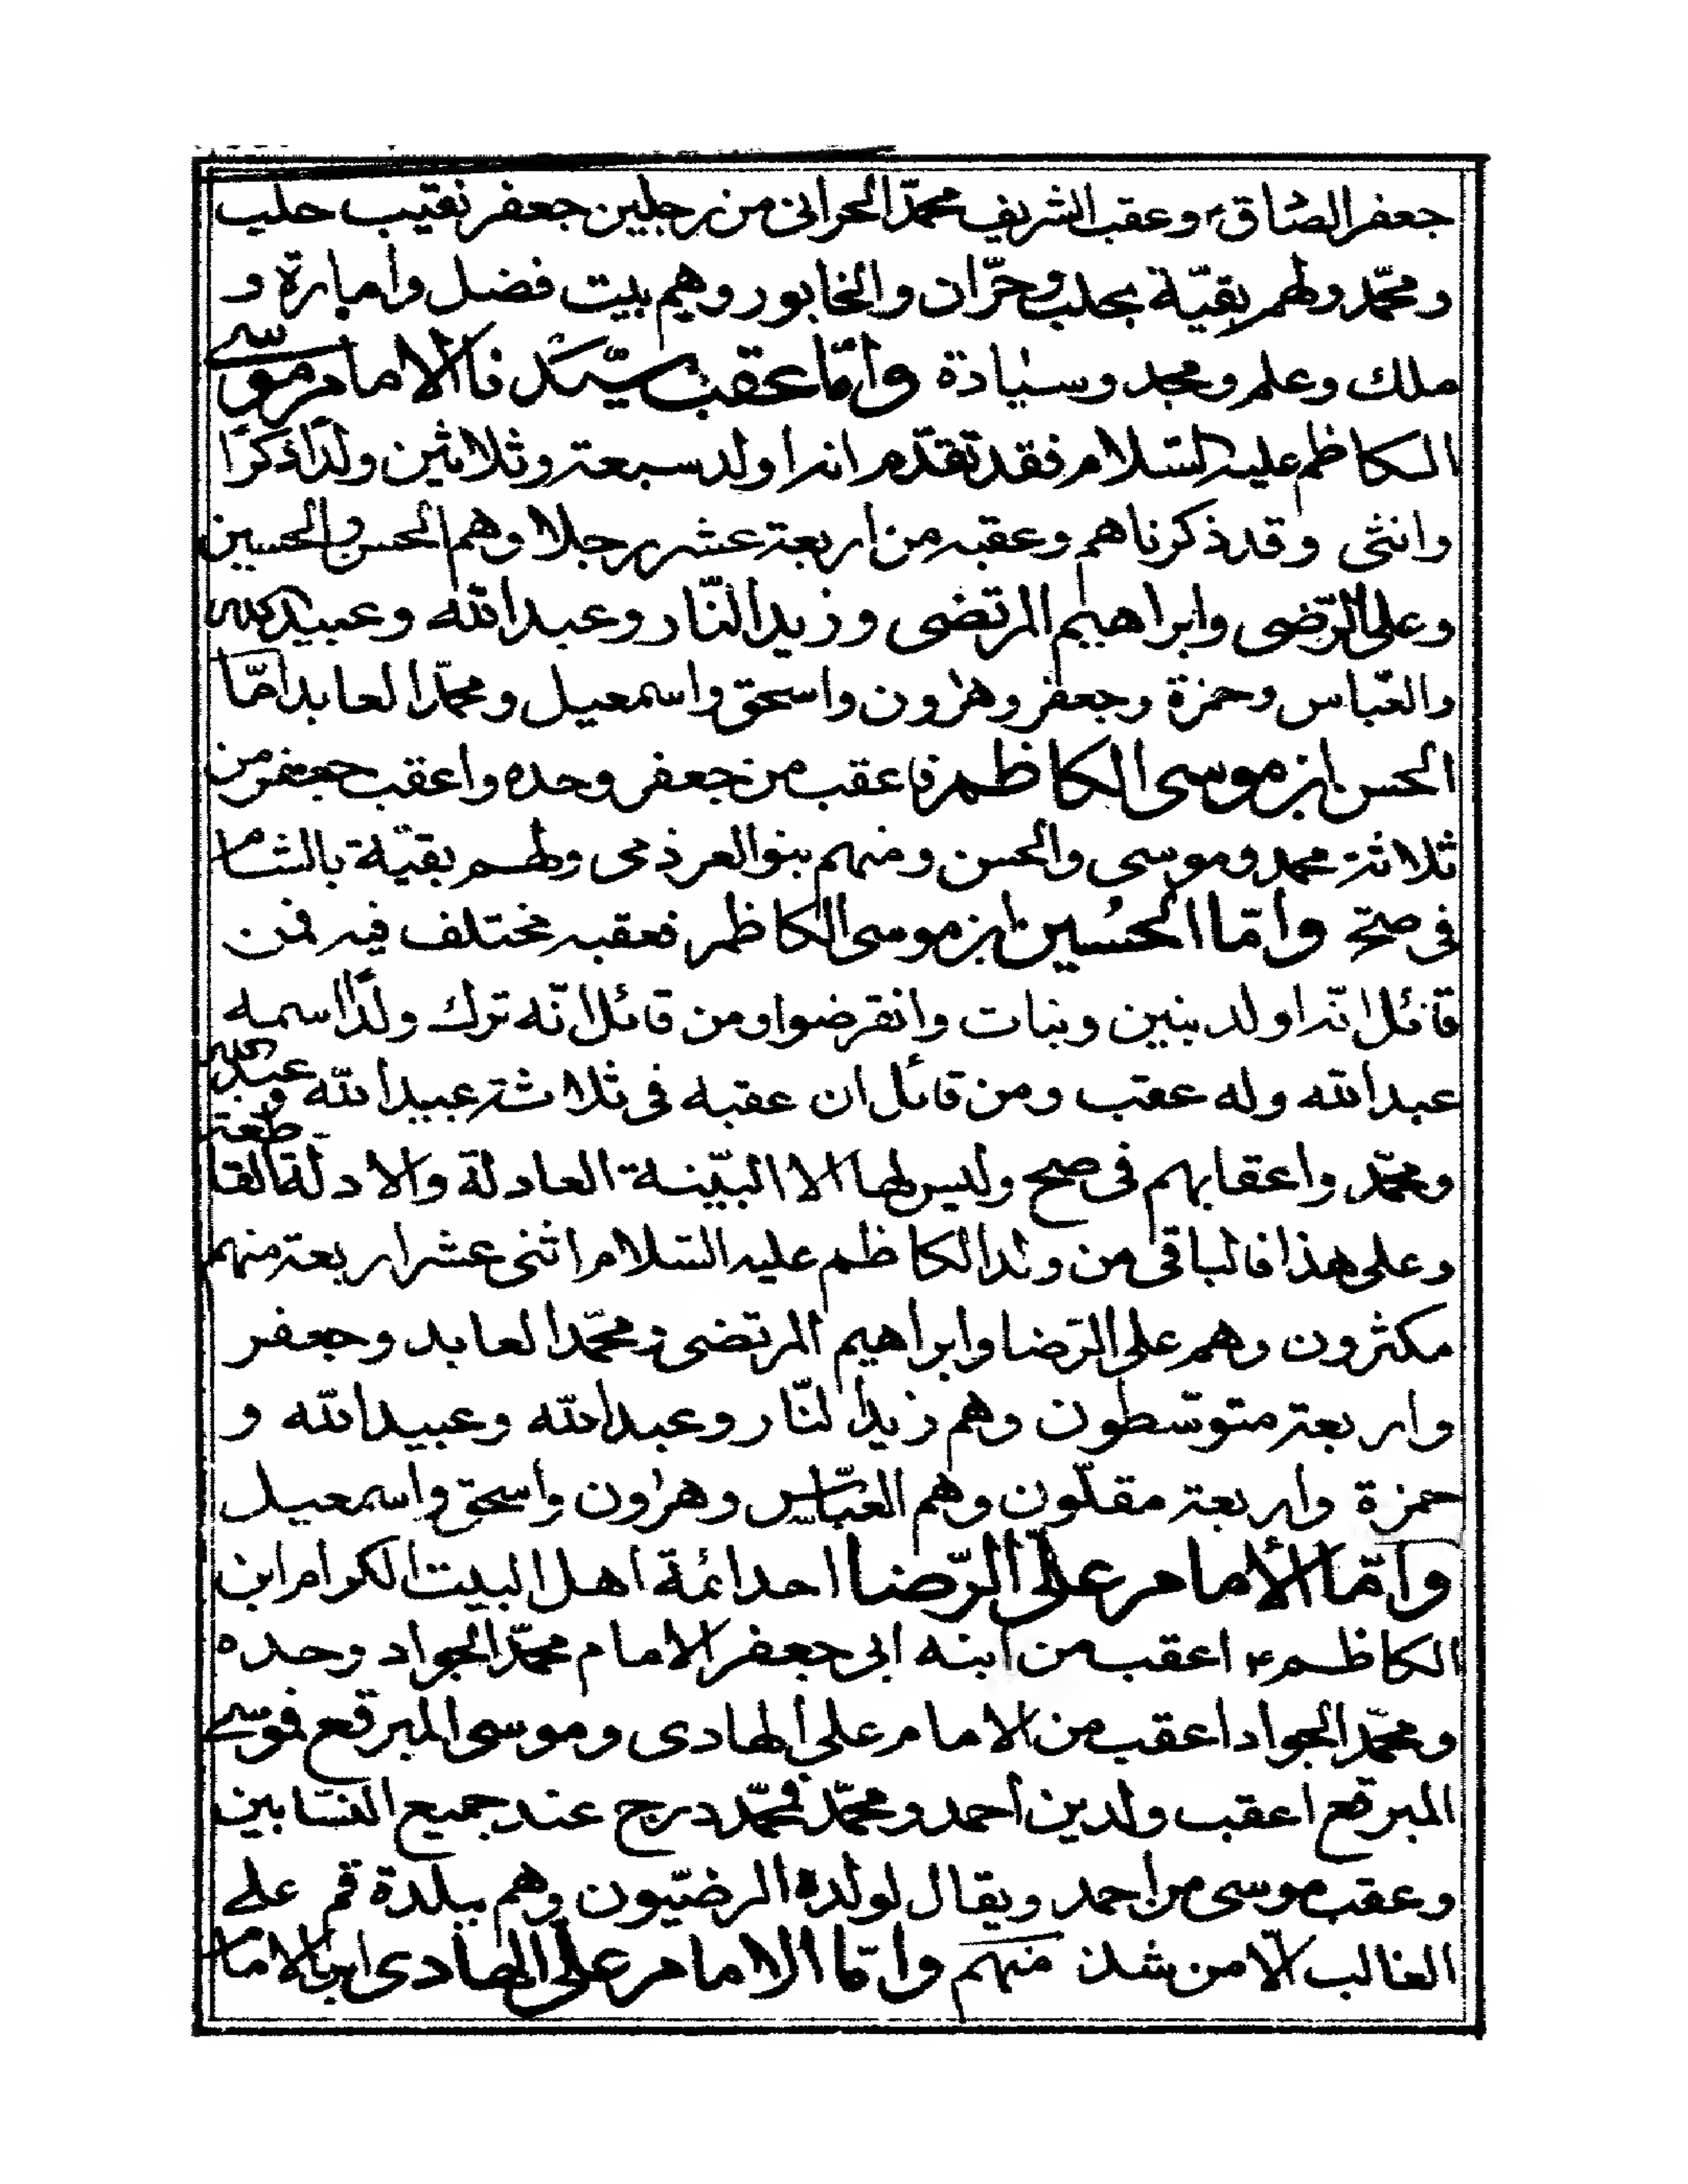 جعفر الصادق ع وعقب الشريف محمّد الحراني من رجلين جعفر نقيب حلب
ومحمّد ولهم بقيّة بحلب وحرّان والخابور وهم بيت فضل وامارة و
ملك وعلم ومجد وسيادة وامّا عقب سيّدنا الامام موسى
الكاظم عليه السّلام فقد تقدّم انه اولد سبعة وثلاثين ولدًا ذكرًا
وانثى وقد ذكرناهم وعقبه من اربعة عشر رجلا وهم الحسن والحسين
وعلى الرّضى وابراهيم المرتضى وزيد النّار وعبد الله وعبيد الله
والعبّاس وحمزة وجعفر وهرون واسحق واسمعيل ومحمّد العابد امّا
الحسن ابن موسى الكاظم فاعقب من جعفر وحده واعقب جعفر من
ثلاثة محمد وموسى والحسن ومنهم بنو العرذمى ولهم بقيّة بالشام
فى صحّ وامّا الحسين ابن موسى الكاظم فعقبه مختلف فيه فمن
قائل انّه اولد بنين وبنات وانقرضوا ومن قائل انّه ترك ولدًا اسمه
عبد الله وله عقب ومن قائل ان عقبه فى ثلاثة عبيد الله وعبد الله
ومحمّد واعقابهم فى صح وليس لها الا البيّنة العادلة والادلة القاطعة
وعلى هذا فالباقى من ولد الكاظم عليه السّلام اثنى عشر اربعة منهم
مكثرون وهم على الرّضا وابراهيم المرتضى ومحمّد العابد وجعفر
واربعة متوسّطون وهم زيد النّار وعبد الله وعبيد الله و
حمزة واربعة مقلّون وهم العبّاس وهرون واسحق واسمعيل
وامّا الأمام على الرّضا احد ائمة اهل البيت الكرام ابن
الكاظم ع اعقب من ابنه ابى جعفر الامام محمّد الجواد وحده
ومحمّد الجواد اعقب من الامام على الهادى وموسى المبرقع فموسى
المبرقع اعقب ولدين احمد ومحمّد فمحمّد درج عند جميع النسّابين
وعقب موسى من احمد ويقال لولده الرضيّون وهم ببلدة قم على
الغالب الّا من شذ منهم وامّا الامام على الهادى ابن الامام